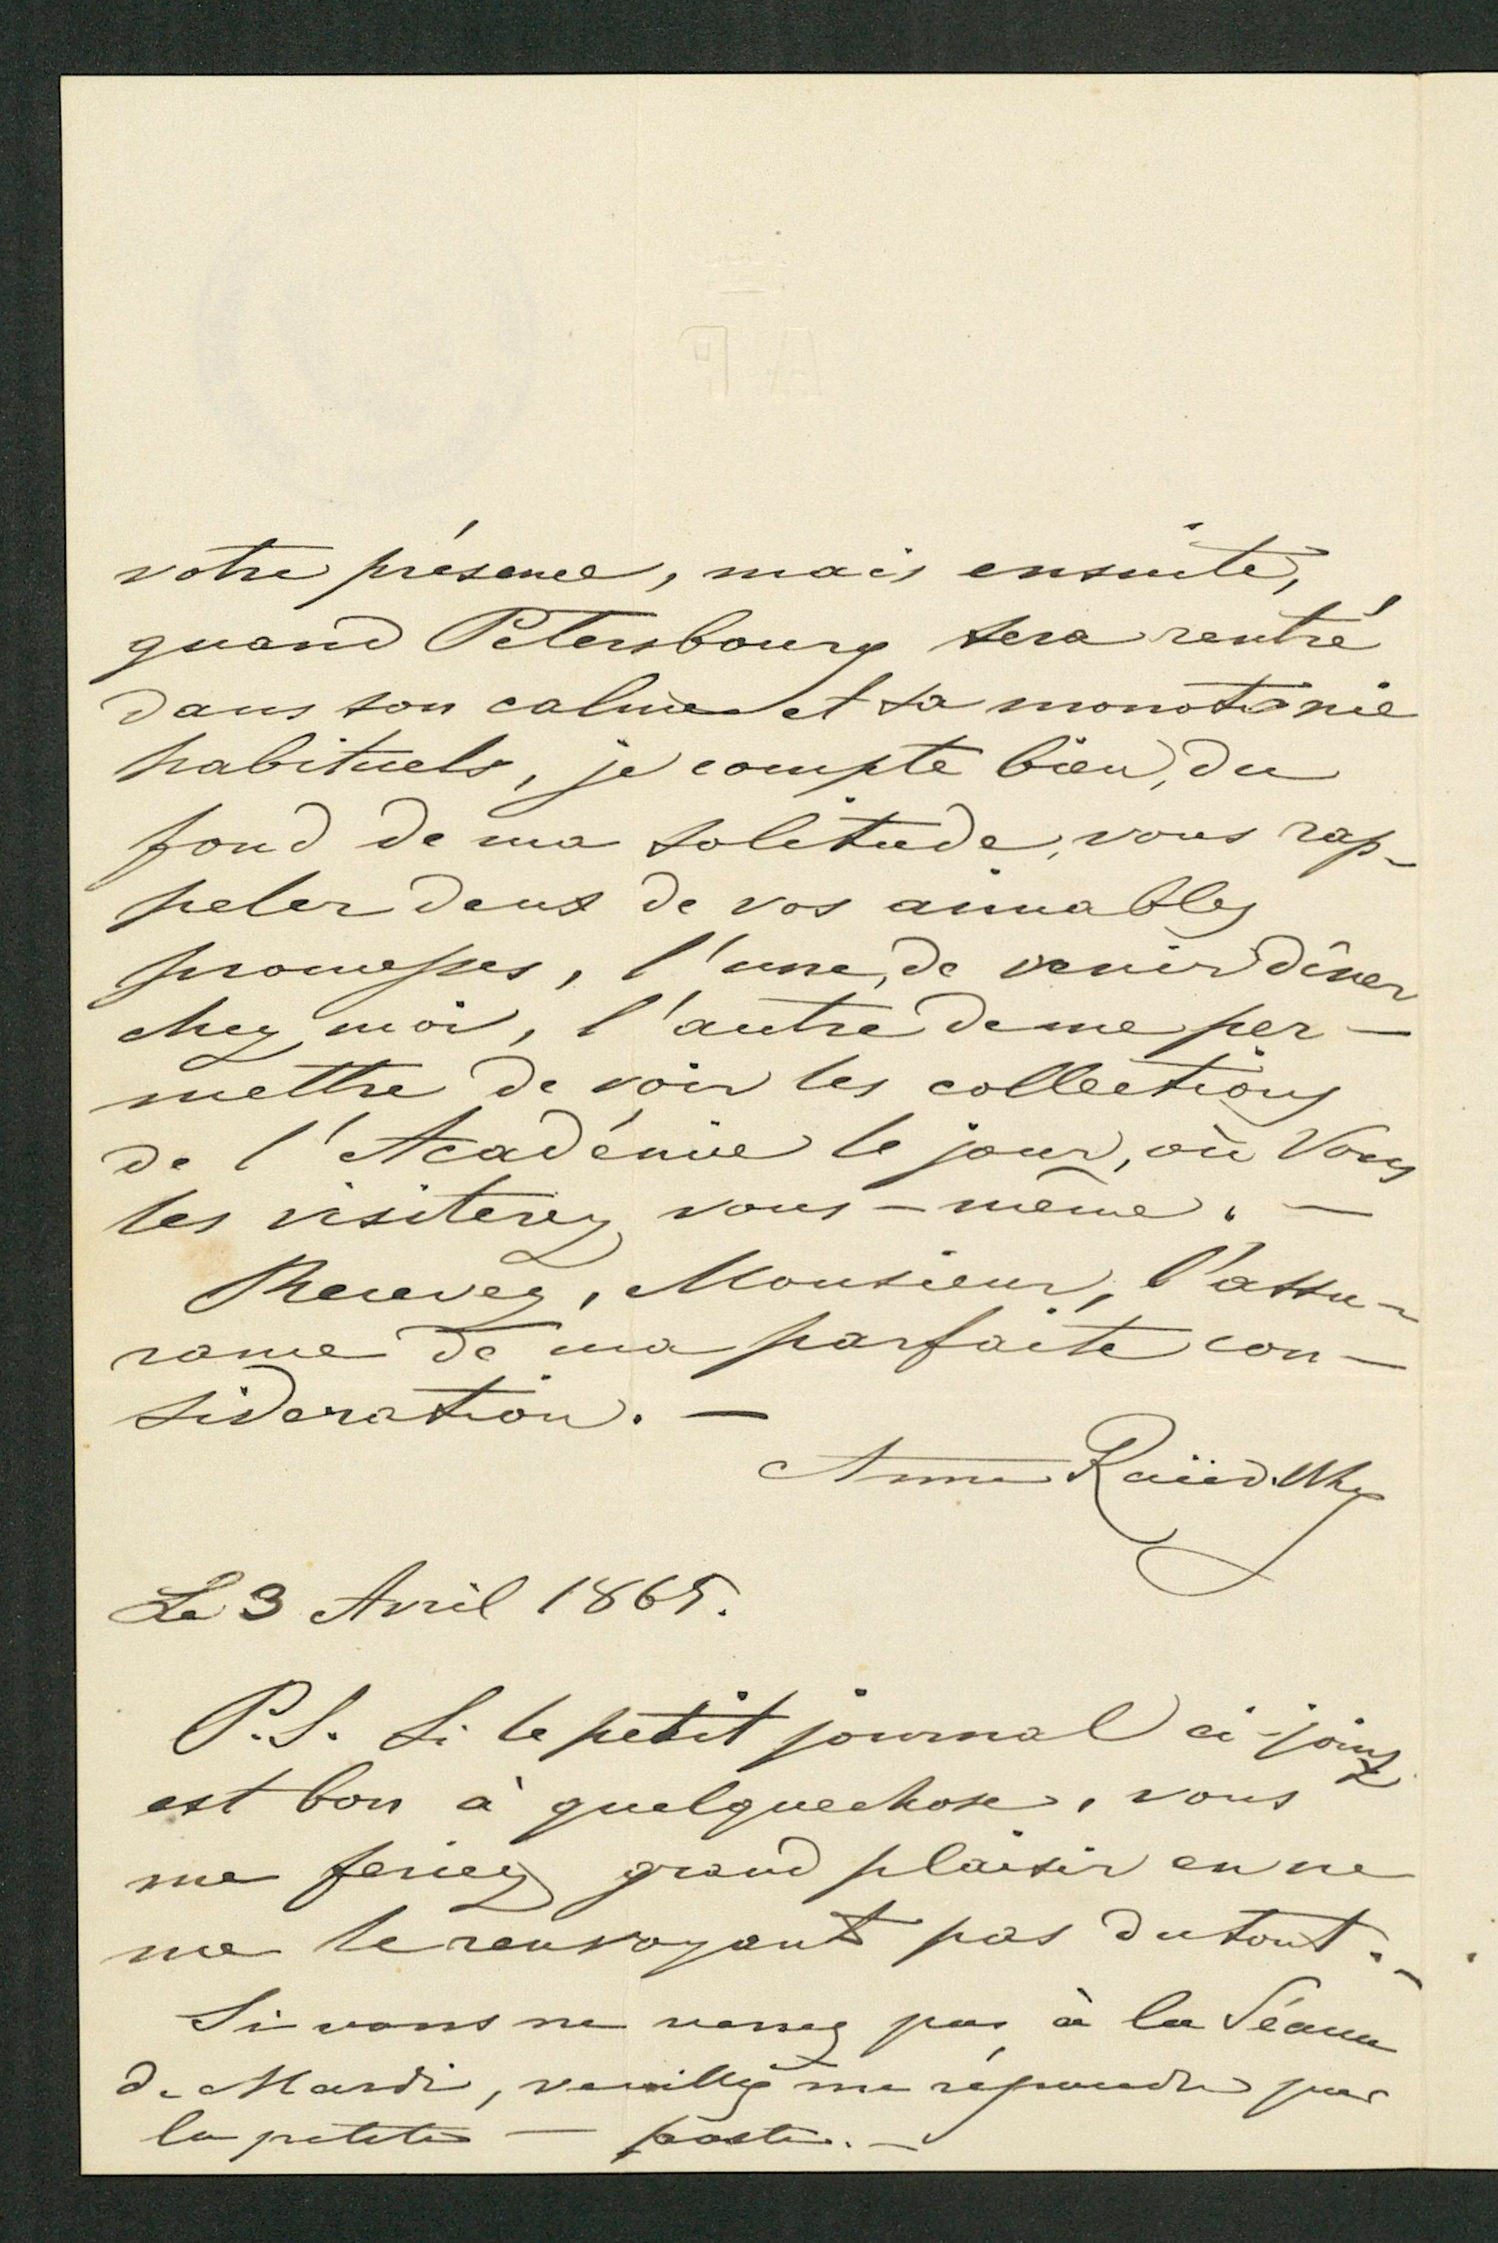 votre présence, mais ensuite,
quand Petersbourg sera rentré
dans son calme et sa monotonie
habituels, je compte bien, du
fond de ma solitude, vous rap-
peler deux de vos aimables
promesses, l'une, de venir dîner
chez moi, l'autre de me per-
mettre de voir les collections
de l'Académie le jour, où Vous
les visiterez vous-même. -
Recevez, Monsieur, l'assu-
rance de ma parfaite con-
sideration. -
Anne
Le 3 Avril 1865.
P.S. Si le petit journal ci-joint
est bon à quelquechose, vous
me feriez grand plaisir en ne
me le renvoyant pas du tout. -
Si vous ne venez pas à la Séance
de Mardi, veuillez me répondre par
la petite - poste. -